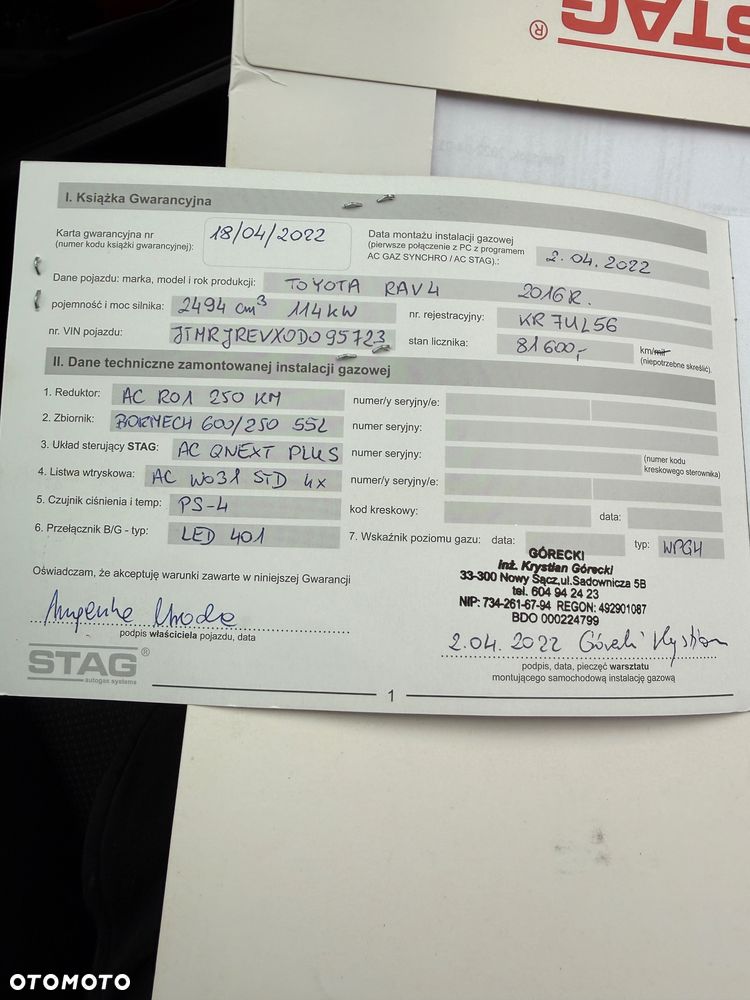 STAG
®
I. Książka Gwarancyjna
Karta gwarancyjna nr
(numer kodu książki gwarancyjnej):
18/04/2022
Data montażu instalacji gazowej
(pierwsze połączenie z PC z programem
AC GAZ SYNCHRO / AC STAG).:
2.04.2022
Dane pojazdu: marka, model i rok produkcji: TOYOTA RAV4 2016R.
pojemność i moc silnika: 2494 cm³ 114kW
nr. rejestracyjny: KR7UL56
nr. VIN pojazdu: JTMRJREVX0D095723
stan licznika: 81600,- km/mil
(niepotrzebne skreślić).
II. Dane techniczne zamontowanej instalacji gazowej
1. Reduktor: AC R01 250 KM numer/y seryjny/e:
2. Zbiornik: BORMECH 600/250 55L numer seryjny:
3. Układ sterujący STAG: AC QNEXT PLUS numer seryjny:
(numer kodu
kreskowego sterownika)
4. Listwa wtryskowa: AC W031 STD 4x numer/y seryjny/e:
5. Czujnik ciśnienia i temp: PS-4 kod kreskowy: data:
6. Przełącznik B/G - typ: LED 401 7. Wskaźnik poziomu gazu: data: typ: WPGH
GÓRECKI
inż. Krystian Górecki
33-300 Nowy Sącz,ul.Sadownicza 5B
tel. 604 94 24 23
NIP: 734-261-67-94 REGON: 492901087
BDO 000224799
Oświadczam, że akceptuję warunki zawarte w niniejszej Gwarancji
podpis właściciela pojazdu, data
2.04.2022 Górecki Krystian
podpis, data, pieczęć warsztatu
montującego samochodową instalację gazową
STAG®
autogas systems
1
OTOMOTO